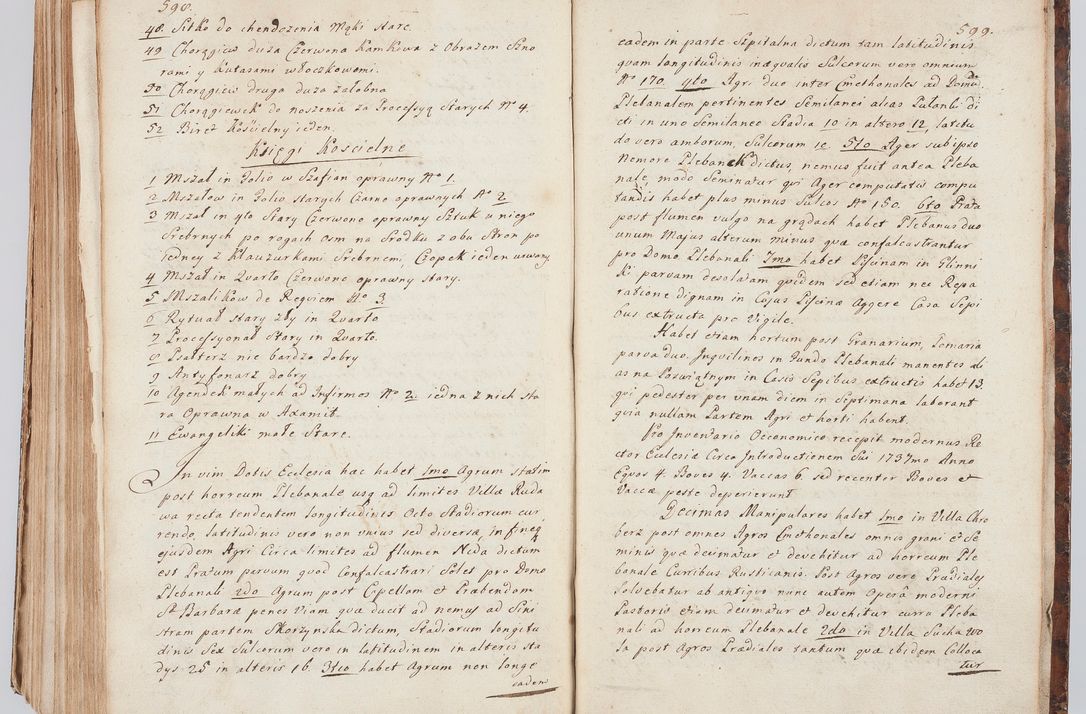 598.
48. Sitko do chendozenia Mąki stare.
49 Chorągiew duza Czerwona Kamkowa z Obrazem Szno
rami y Kutasami włoczkowemi.
50 Chorągiew druga duza załobna
51 Chorągiewek do noszenia za Processyą starych No 4.
52. Biret Kościelny ieden.
Księgi Koscielne
1 Mszał in Folio w Szafian oprawny No 1.
2 Mszałow in Folio starych Czarno oprawnych No 2
3 Mszał in 4to Stary Czerwono oprawny Sztuk u niego
Srebrnych po rogach osm na Srodku z obu Stron po
iedney z Klauzurkami Srebrnemi, Czopek ieden urwany
4 Mszał in Quarto Czerwono oprawny stary.
5 Mszalikow de Requiem No 3.
6 Rytuał stary zły in Quarto
7 Processyonał Stary in Quarto.
8 Psałterz nie bardzo dobry
9 Antyfonarz dobry
10 Agendek małych ad Infirmos No 2. iedna z nich sta
ra Oprawna w Axamit.
11 Ewangeliki małe Stare.
In vim Dotis Ecclesia hac habet 1mo Agrum statim
post horreum Plebanale usq ad limites Villæ Ruda
wa recta tendentem longitudinis Octo Stadiorum cur
rendo, latitudinis vero non unius sed diversa, in fineq
ejusdem Agri Circa limites ad flumen Nida dictum
est Pratum parvum quod Confalcastrari Solet pro Domo
Plebanali 2do Agrum post Cepellam et Præbendam
St Barbaræ penes Viam quæ ducit ad nemus ad Sini
stram partem Skorzynska dictum, Stadiorum longitu
dinis Sex Sulcorum vero in latitudinem in alteris Sta
dys 25 in alteris 16. 3tio habet Agrum non longe
eadem
599.
eadem in parte Szpitalna dictum tam latitudinis
quam longitudinis inæqualis Sulcorum vero omnium
No 170. 4to Agri duo inter Cmethonales ad Domū
Plebanalem pertinentes Semilanei alias Pułanki di
cti in uno Semilaneo Stadia 10 in altero 12, latitu
do vero amborum, Sulcorum 12 5to Ager sub ipso
Nemore Plebanek dictus, nemus fuit antea Pleba
nale, modo Seminatur qui Ager computatis compu
tandis habet plus minus Sulcos No 150. 6to Prata
post flumen vulgo na grądach habet Plebanus duo
unum Majus alterum minus quæ confalcastrantur
pro Domo Plebanali 7mo habet Piscinam in Glinni
ki parvam desolatam quidem sed etiam nec Repa
ratione dignam in Cujus Piscinæ Aggere Casa Sepi
bus extructa pro Vigile.
Habet etiam hortum post Granarium, Pomaria
parva duo. Inquilinos in Fundo Plebanali manentes ali
as na Poswiątnym in Casis Sepibus extructis habet 13.
qui pedester per unam diem in Septimana laborant
quia nullam Partem Agri et horti habent.
Pro Inventario Oeconomico recepit modernus Re
ctor Ecclesiæ Circa Introductionem Sui 1737mo Anno
Equos 4. Boves 4. Vaccas 6. sed recenter Boves et
Vaccæ peste deperierunt
Decimas Manipulares habet 1mo in Villa Chro
berz post omnes Agros Cmethonales omnis grani et Se
minis quæ decimatur et devehitur ad horreum Ple
banale Curribus Rusticanis. Post Agros vero Prædiales
Solvebatur ab antiquo nunc autem Operâ moderni
Pastoris etiam decimatur et devehitur curru Pleba
nali ad horreum Plebanale 2do in Villa Sucha wo
la post Agros Prædiales tantum quæ ibidem Colloca
tur